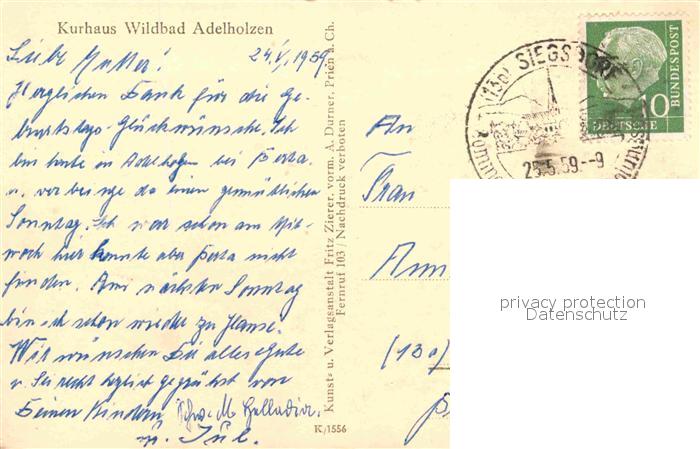 Kurhaus Wildbad Adelholzen
Liebe Mutter! 24.V.1959
Herzlichen Dank für die Ge-
burtstags-Glückwünsche. Ich
bin heute in Adelholzen bei Berta
u. verbringe da einen gemütlichen
Sonntag. Ich war schon am Mit-
woch hier konnte aber Berta nicht
finden. Am nächsten Sonntag
bin ich schon wieder zu Hause.
Wir wünschen Dir alles Gute
u. Sei recht herzlich gegrüßt von
Deinen Kindern
u.
K/1556
Kunst- u. Verlagsanstalt Fritz Zierer, vorm. A. Durner, Prien a. Ch.
Fernruf 103 / Nachdruck verboten
(13b) SIEGSDORF
25.5.59.--9
10
DEUTSCHE
BUNDESPOST
An
Frau
(13b)
privacy protection
Datenschutz